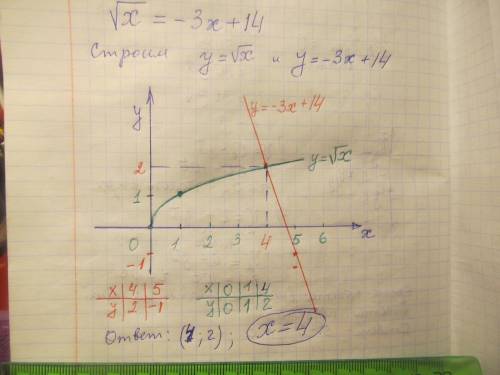 √x = -3x+14
Строим y=√x и y=-3x+14
y=-3x+14
y
2
y=√x
1
0 1 2 3 4 5 6 x
-1
x 4 5
y 2 -1
x 0 1 4
y 0 1 2
Ответ: (4; 2); x=4